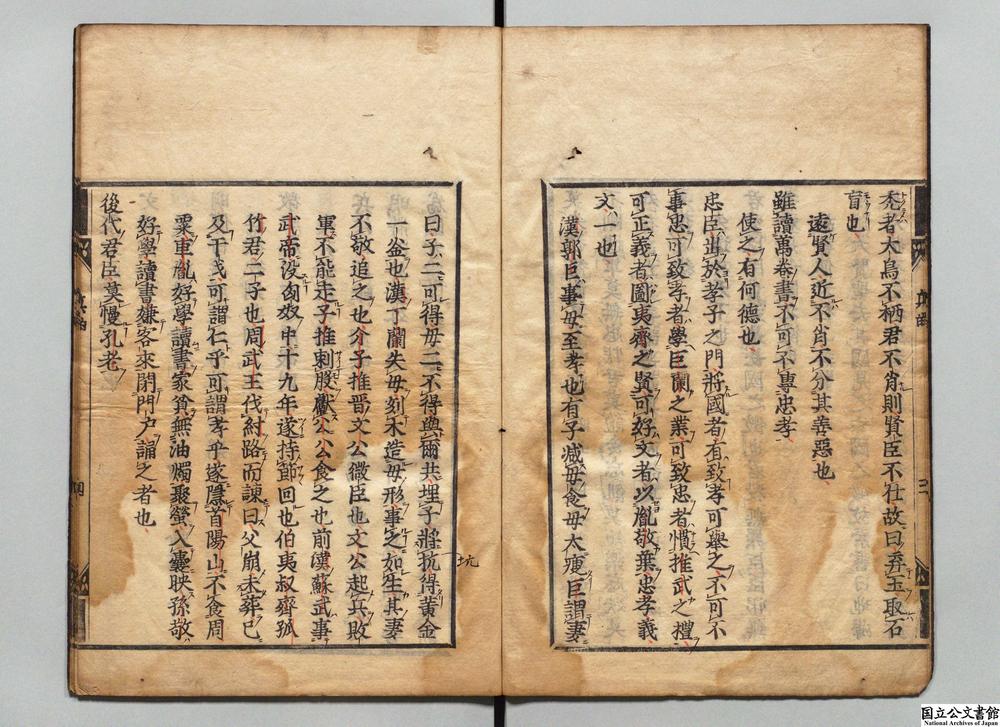 禿者大鳥不栖君不肖則賢臣不仕故曰弃玉取石
盲也
遠賢人近不肖不分其善惡也
雖讀萬卷書不可不專忠孝
使之有何德也
忠臣出於孝子之門將國者有致孝可舉之不可不
事忠可致孝者學巨蘭之業可致忠者慣推武之
可正義者圖夷齊之賢可好文者以胤敬葉忠孝義
文一也
漢郭巨事母至孝也有子减母食母大瘦巨謂妻
曰子二可得母二不得與爾共埋子將抗得黄金
一釜也漢丁蘭失母刻木造母形事之如生其妻
不敬追之也介子推晋文公微臣也文公起兵敗
軍不能走子推刺股獻公公食之也前漢蘇武事
武帝没匈奴中十九年遂持節回也伯夷叔齊孤
竹君二子也周武王伐紂路而諫曰父崩未葬已
及干戈可謂仁乎可謂孝乎遂隱首陽山不食周
粟車胤好學讀書家貧無油燭聚螢入囊映孫敬
好學讀書嫌客來閉門户誦之者也
後代君臣莫慢孔老
坑
国立公文書館
National Archives of Japan